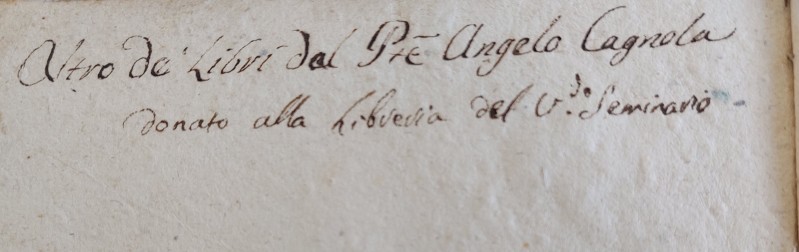 Altro de' Libri dal Pte Angelo Cagnola
donato alla Libreria del V.do Seminario